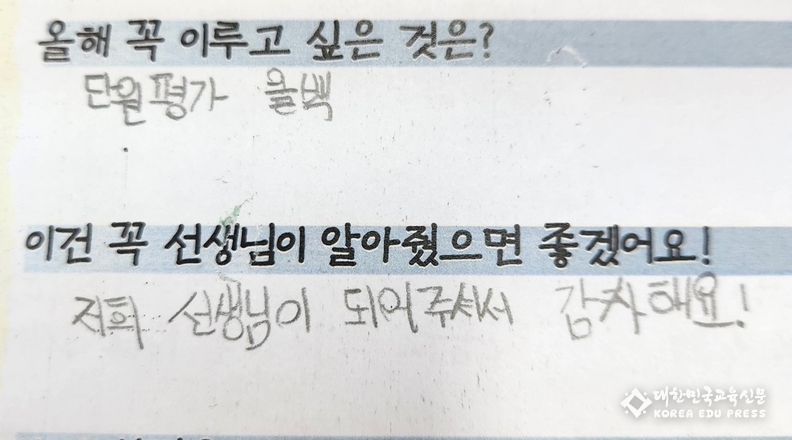 올해 꼭 이루고 싶은 것은?
단원평가 올백
이건 꼭 선생님이 알아줬으면 좋겠어요!
저희 선생님이 되어주셔서 감사해요!
대한민국교육신문
KOREA EDU PRESS